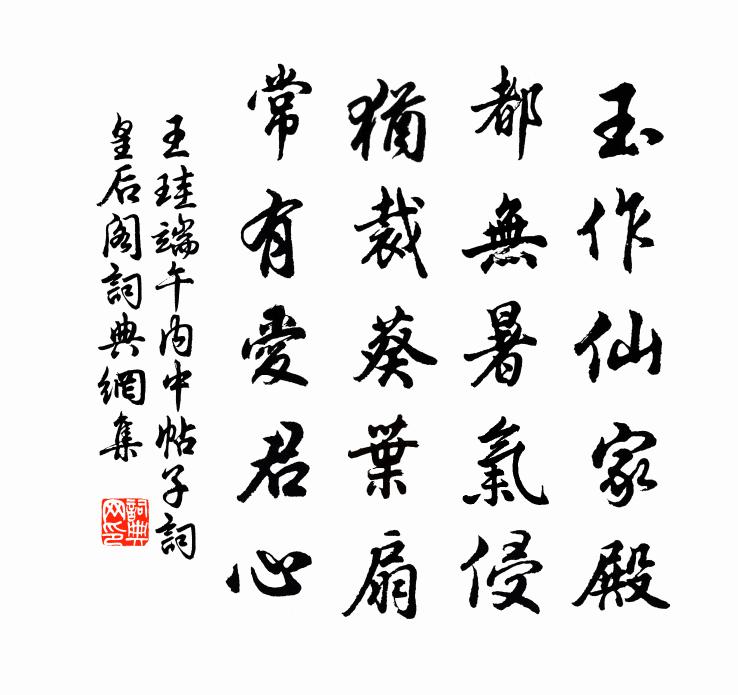 玉作仙家殿
都無暑氣侵
猶裁葵葉扇
常有愛君心
王珪端午內中帖子詞
皇后阁詞典網集
詞典网印